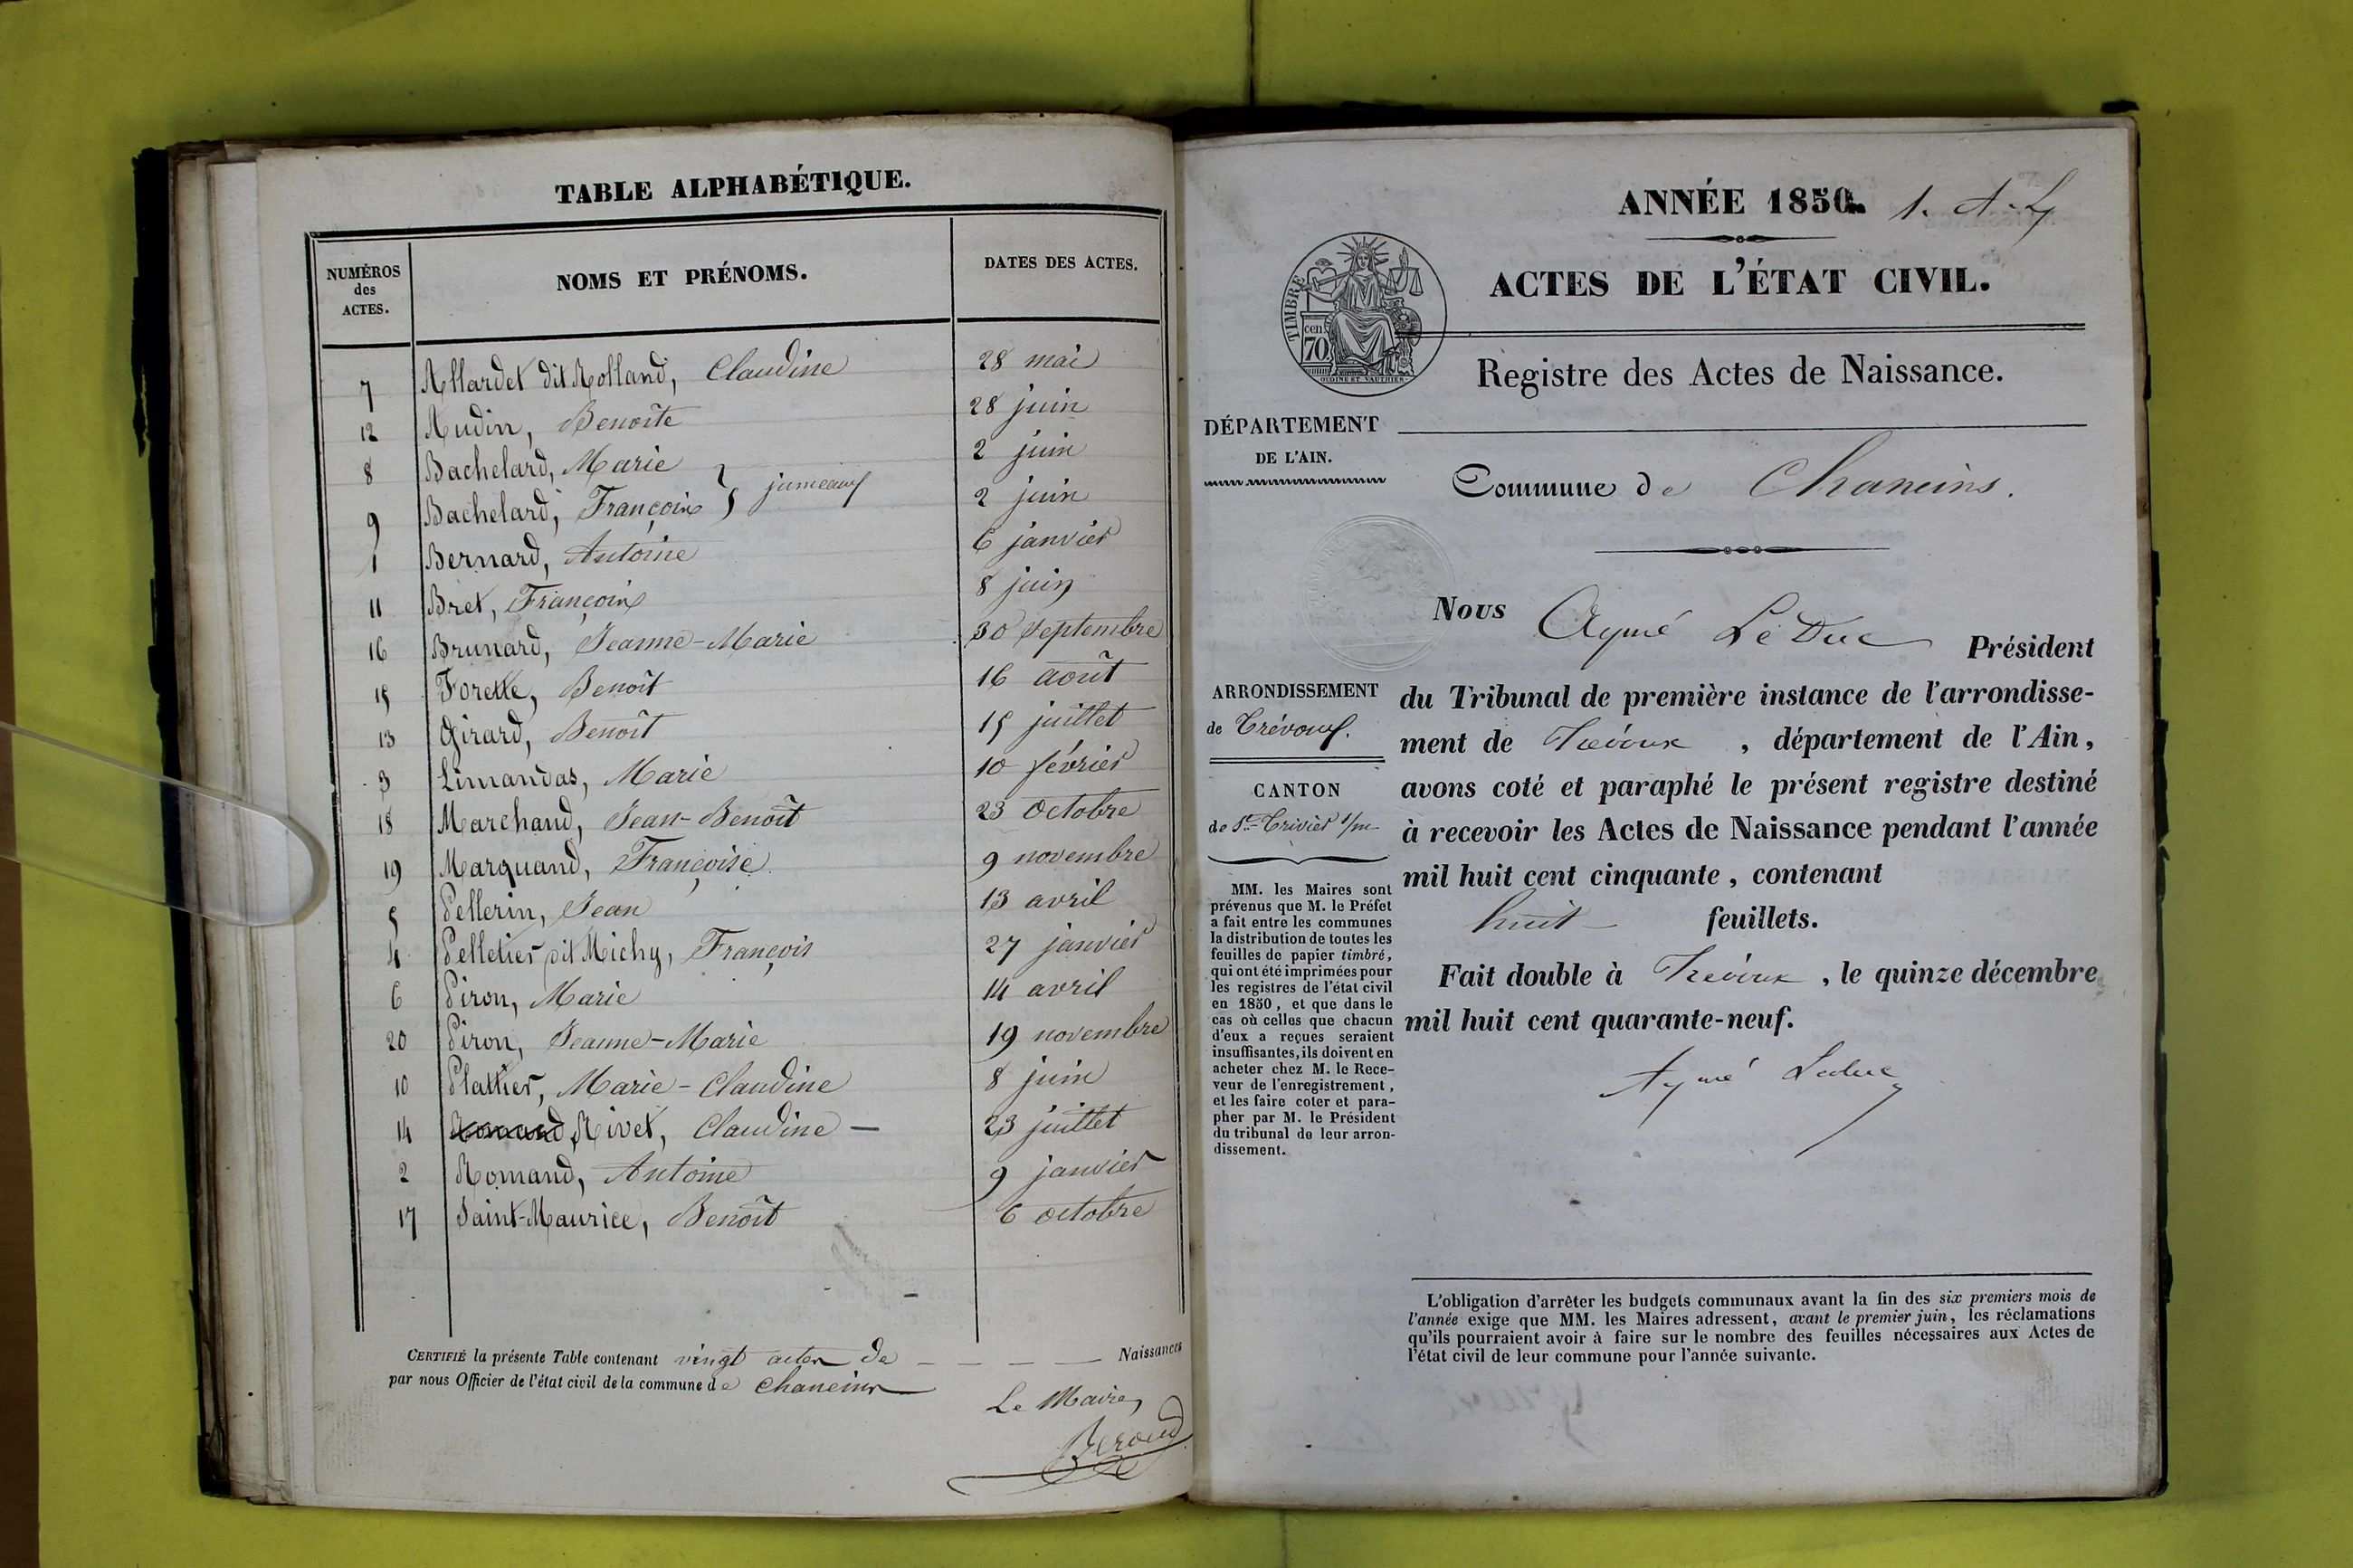 TABLE ALPHABÉTIQUE.
NUMÉROS des ACTES. NOMS ET PRÉNOMS. DATES DES ACTES.
7 Allardet dit Rolland, Claudine 28 mai
12 Audin, Benoîte 28 juin
8 Bachelard, Marie 2 juin
9 Bachelard, François } jumeaux 2 juin
1 Bernard, Antoine 6 janvier
11 Bret, François 8 juin
16 Brunard, Jeanne-Marie 30 septembre
15 Forette, Benoît 16 août
13 Girard, Benoît 15 juillet
3 Limandas, Marie 10 février
18 Marchand, Jean-Benoît 23 octobre
19 Marquand, Françoise 9 novembre
5 Pellerin, Jean 13 avril
4 Pelletier dit Michy, François 27 janvier
6 Piron, Marie 14 avril
20 Piron, Jeanne-Marie 19 novembre
10 Plattier, Marie-Claudine 8 juin
14 Rivet, Claudine — 23 juillet
2 Romand, Antoine 9 janvier
17 Saint-Maurice, Benoît 6 octobre
CERTIFIÉ la présente Table contenant vingt actes de — — — — Naissances
par nous Officier de l'état civil de la commune de Chaneins
Le Maire,
Beroud
ANNÉE 1850. 1. A. L
ACTES DE L'ÉTAT CIVIL.
TIMBRE
cen.
70
OUDINE ET VAUTHIER
Registre des Actes de Naissance.
DÉPARTEMENT
DE L'AIN.
Commune de Chaneins.
Nous Aymé Le Duc Président
du Tribunal de première instance de l'arrondisse-
ment de Trévoux , département de l'Ain,
avons coté et paraphé le présent registre destiné
à recevoir les Actes de Naissance pendant l'année
mil huit cent cinquante, contenant
huit feuillets.
Fait double à Trévoux , le quinze décembre
mil huit cent quarante-neuf.
Aymé Leduc
ARRONDISSEMENT
de Trévoux.
CANTON
de St-Trivier s/m
MM. les Maires sont
prévenus que M. le Préfet
a fait entre les communes
la distribution de toutes les
feuilles de papier timbré,
qui ont été imprimées pour
les registres de l'état civil
en 1850, et que dans le
cas où celles que chacun
d'eux a reçues seraient
insuffisantes, ils doivent en
acheter chez M. le Rece-
veur de l'enregistrement,
et les faire coter et para-
pher par M. le Président
du tribunal de leur arron-
dissement.
L'obligation d'arrêter les budgets communaux avant la fin des six premiers mois de
l'année exige que MM. les Maires adressent, avant le premier juin, les réclamations
qu'ils pourraient avoir à faire sur le nombre des feuilles nécessaires aux Actes de
l'état civil de leur commune pour l'année suivante.